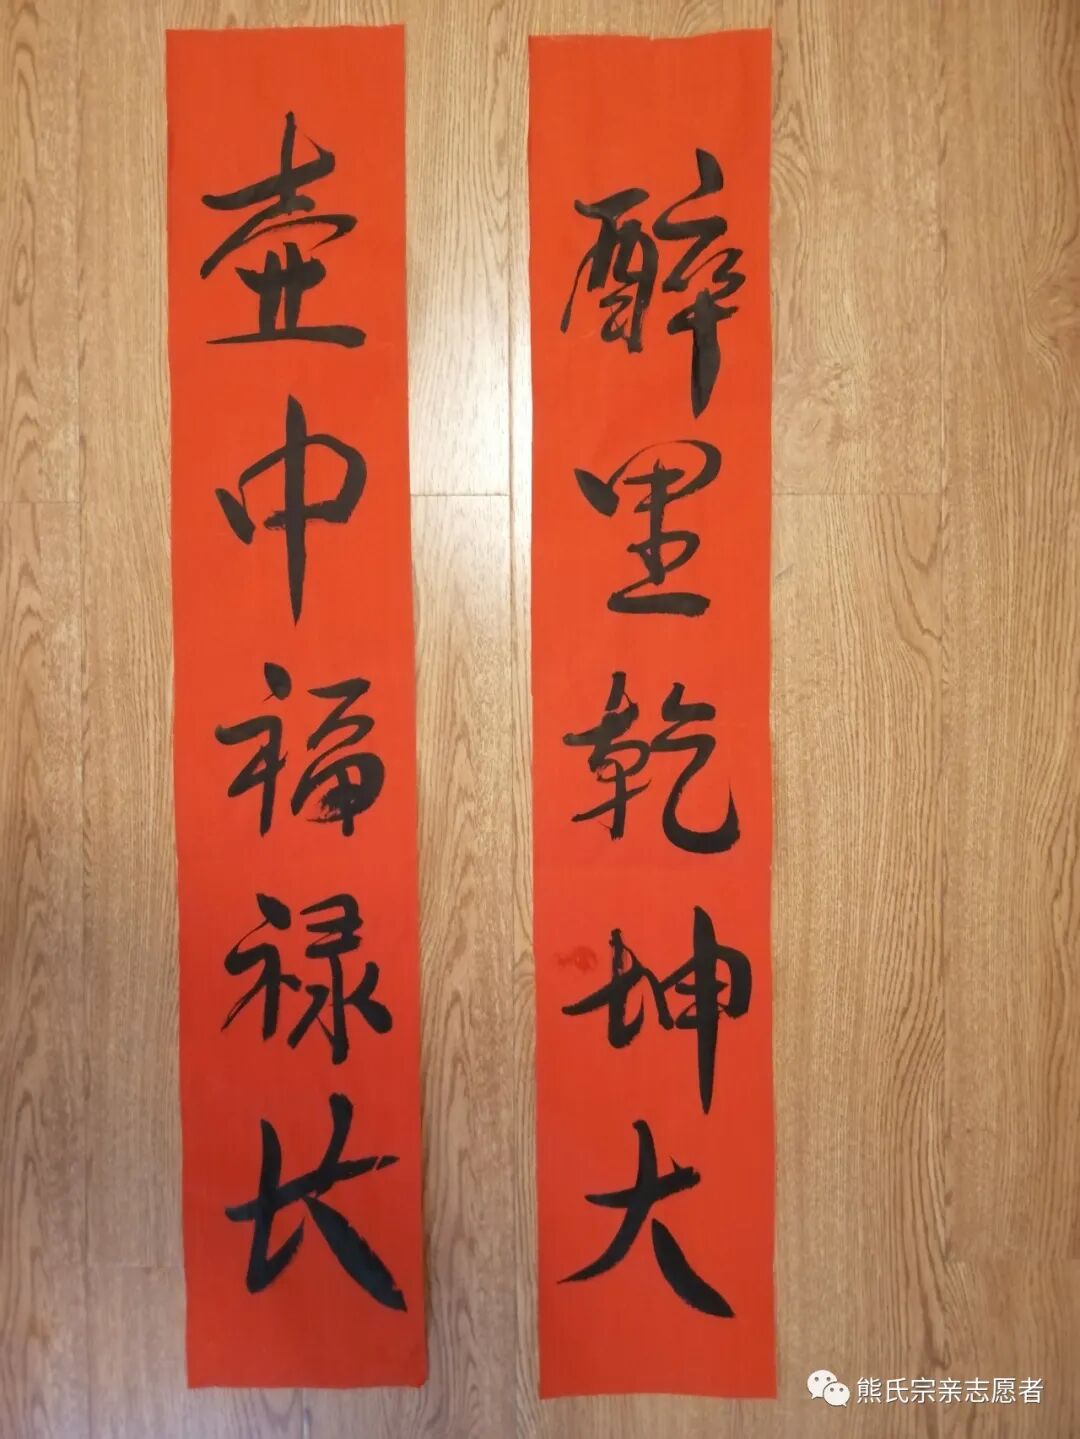 醉里乾坤大
壶中福禄长
熊氏宗亲志愿者